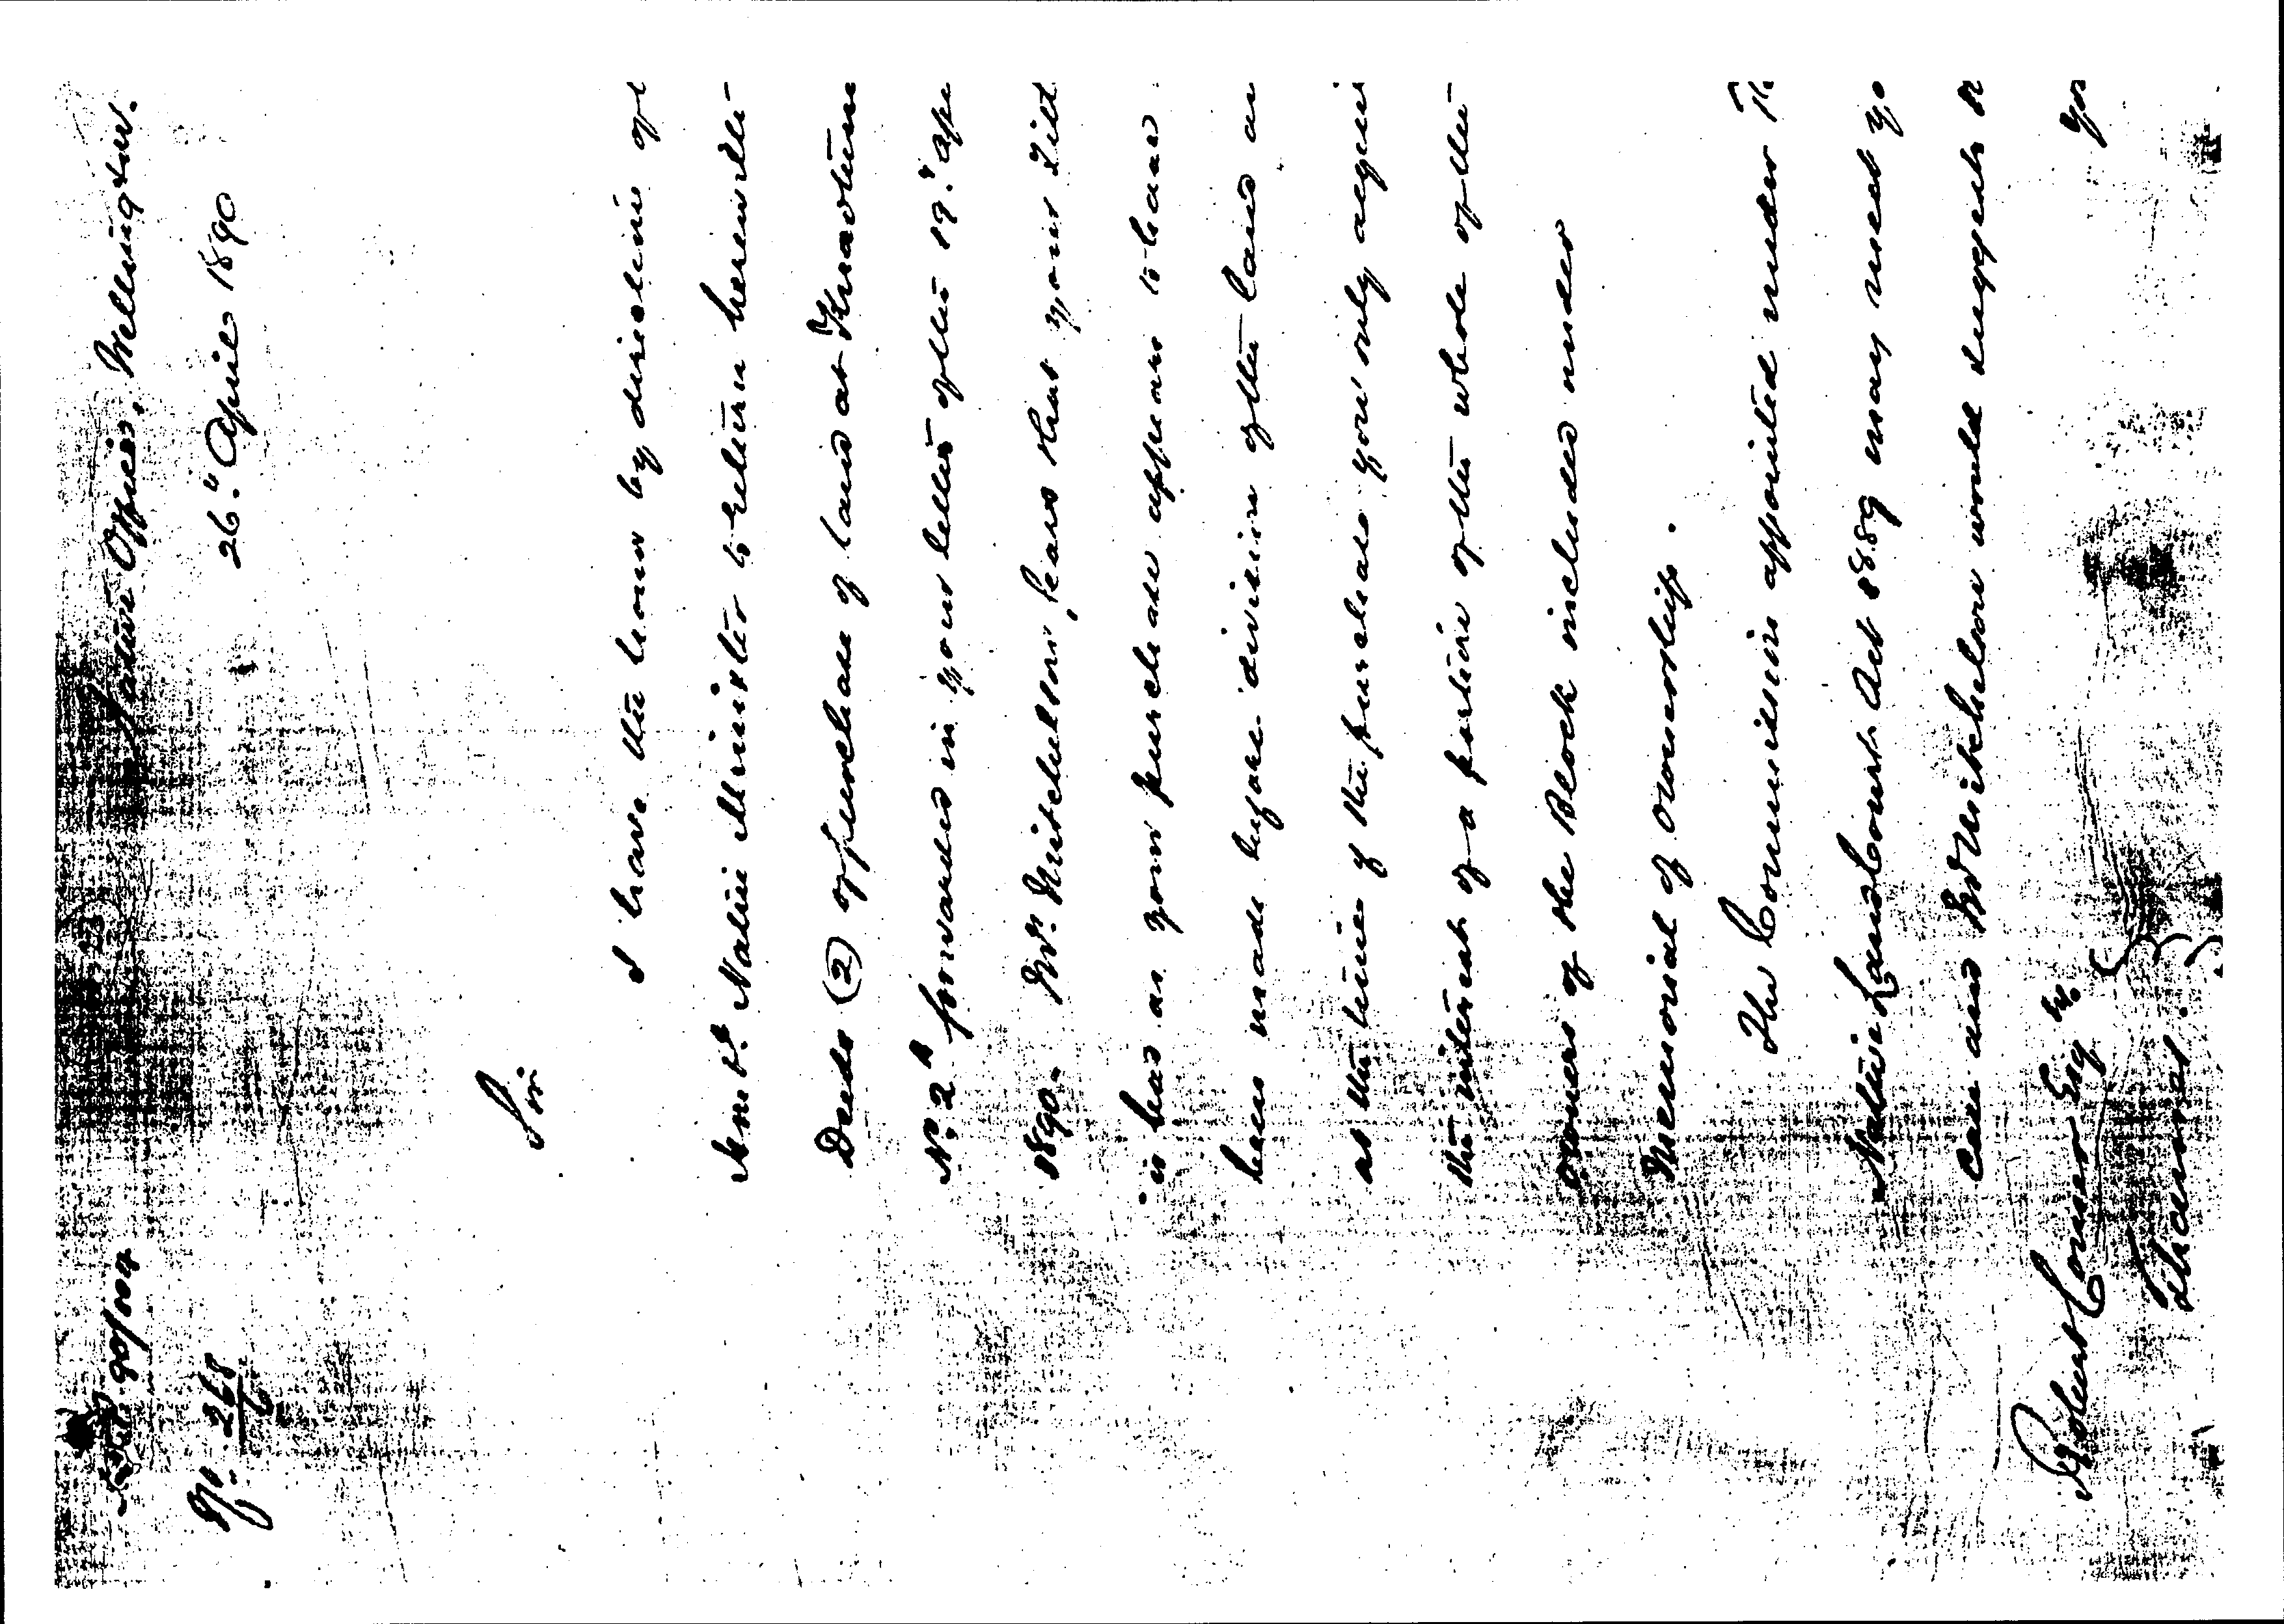 90/1004
Native Office, Wellington.
26." April 1890
Sir
I have the honor by direction of
the Native Minister to return herewith
Deeds (2) of purchase of land at Kuaotunu
No. 2A forwarded in your letter of the 19." Ap
1890. Mr. Mitchelson fears that your Titl
is bad as your purchase appears to have
been made before division of the land an
at the time of the purchase you only acqui
the interest of a portion of the whole of the
owners of the Block included under
Memorial of Ownership.
The Commission appointed under Th
Native Land Court Act 1889 may meet yo
Case and Mr Mitchelson would suggest
Robert Comer Esq
Thames.